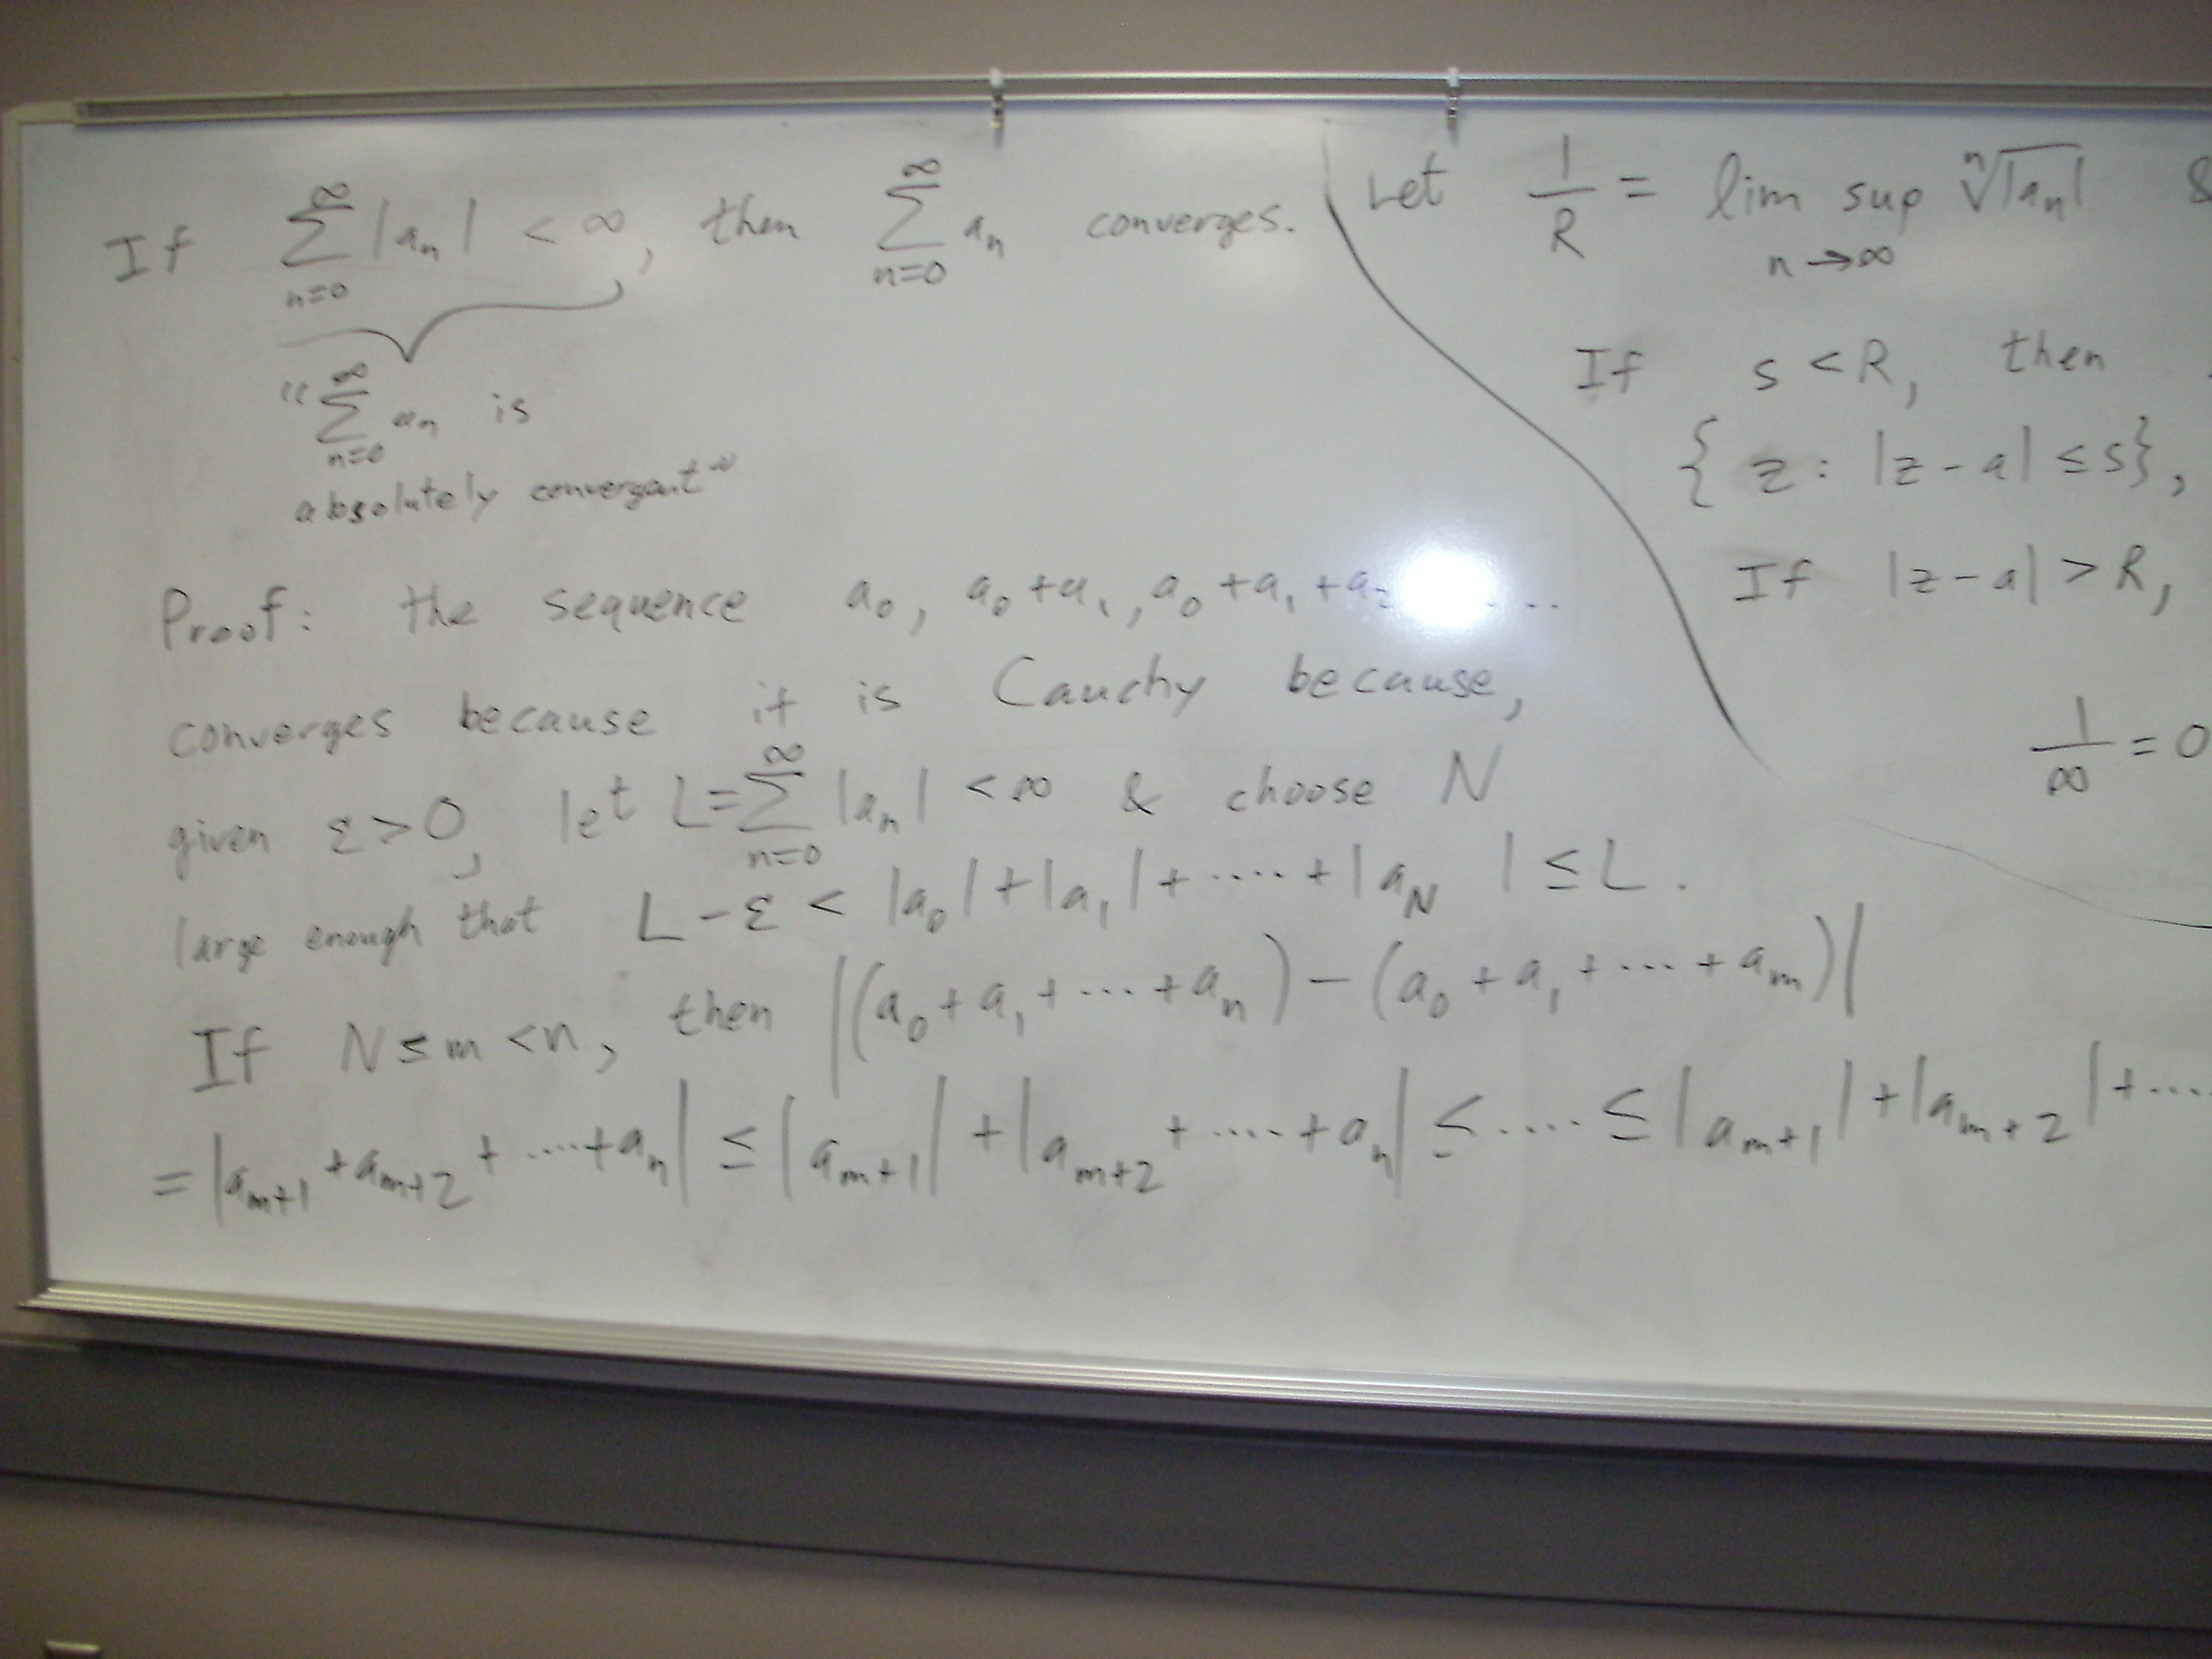 If ∑_{n=0}^{∞} |a_n| < ∞, then ∑_{n=0}^{∞} a_n converges.
"∑_{n=0}^{∞} a_n is
absolutely convergent"
Proof: the sequence a_0, a_0 + a_1, a_0 + a_1 + a_2 ...
converges because it is Cauchy because,
given ε > 0, let L = ∑_{n=0}^{∞} |a_n| < ∞ & choose N
large enough that L - ε < |a_0| + |a_1| + ..... + |a_N| ≤ L.
If N ≤ m < n, then |(a_0 + a_1 + ... + a_n) - (a_0 + a_1 + ... + a_m)|
= |a_{m+1} + a_{m+2} + ....+ a_n| ≤ |a_{m+1}| + |a_{m+2} + .... + a_n| ≤ .... ≤ |a_{m+1}| + |a_{m+2}| + ....
Let 1/R = lim sup_{n→∞} ⁿ√|a_n| &
If s < R, then
{z : |z - a| ≤ s},
If |z - a| > R,
1/∞ = 0